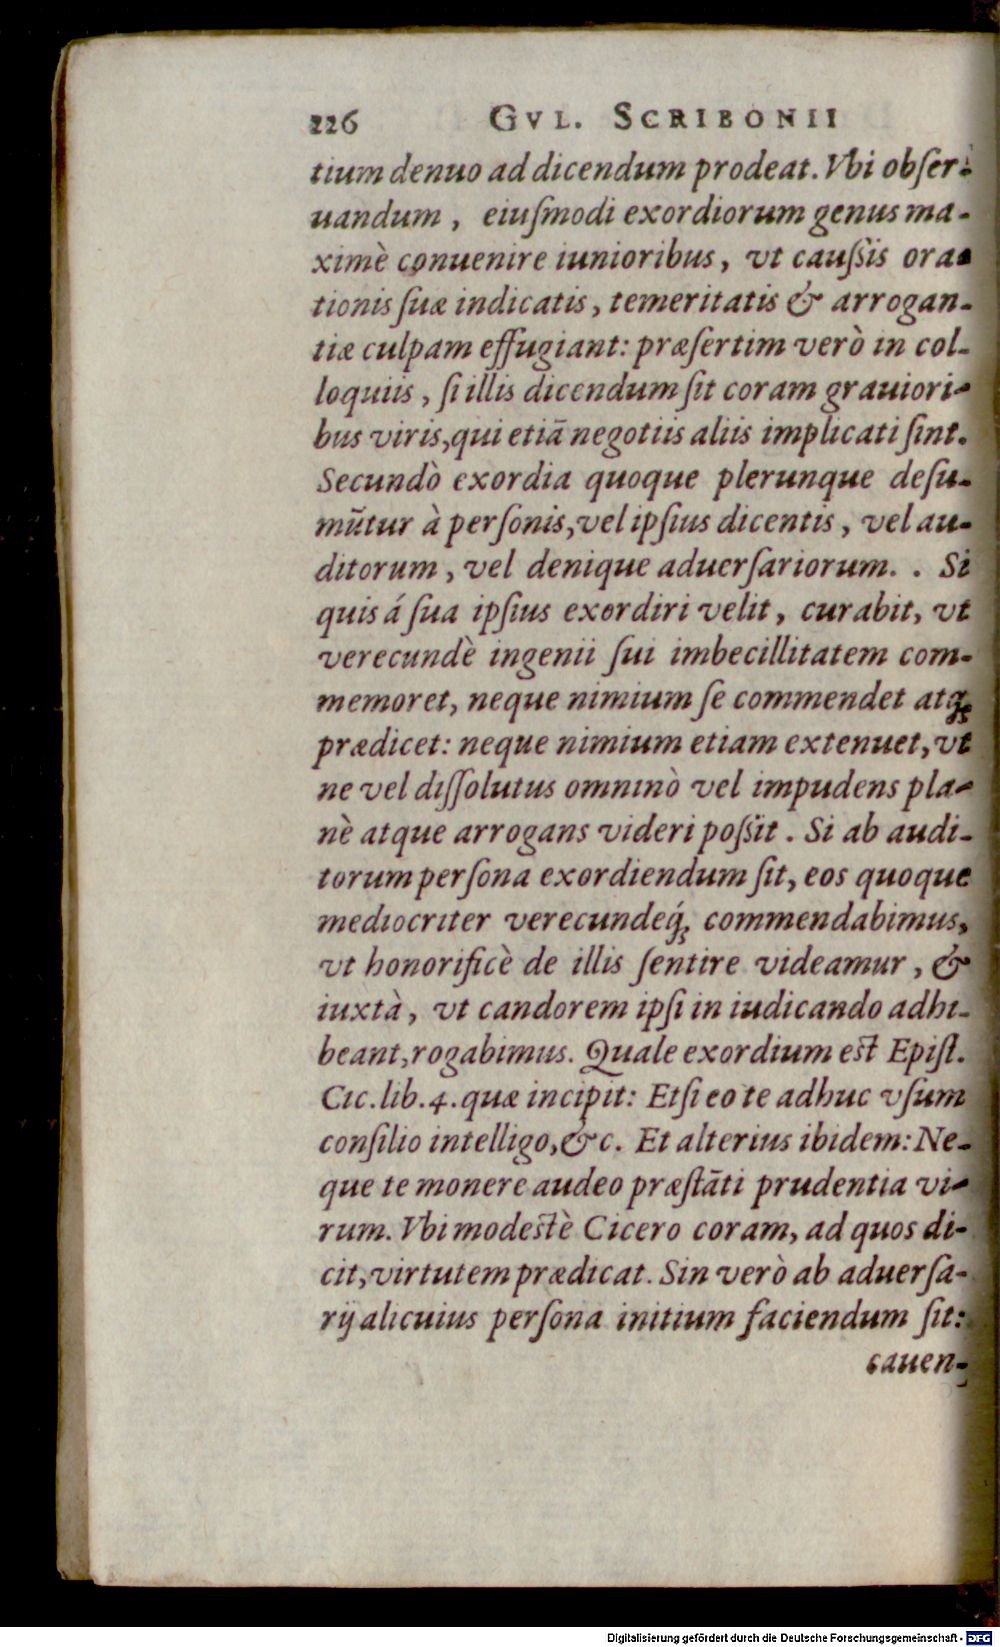 226 GVL. SCRIBONII
tium denuo ad dicendum prodeat. Vbi obſer-
uandum, eiuſmodi exordiorum genus ma-
ximè conuenire iunioribus, vt cauſsis ora-
tionis ſuæ indicatis, temeritatis & arrogan-
tiæ culpam effugiant: præſertim verò in col-
loquiis, ſi illis dicendum ſit coram grauiori-
bus viris, qui etiā negotiis aliis implicati ſint.
Secundò exordia quoque plerunque deſu-
mūtur à perſonis, vel ipſius dicentis, vel au-
ditorum, vel denique aduerſariorum. . Si
quis á ſua ipſius exordiri velit, curabit, vt
verecundè ingenii ſui imbecillitatem com-
memoret, neque nimium ſe commendet atq;
prædicet: neque nimium etiam extenuet, vt
ne vel diſſolutus omninò vel impudens pla-
nè atque arrogans videri poſsit. Si ab audi-
torum perſona exordiendum ſit, eos quoque
mediocriter verecundeq́; commendabimus,
vt honorificè de illis ſentire videamur, &
iuxtà, vt candorem ipſi in iudicando adhi-
beant, rogabimus. Quale exordium eſt Epiſt.
Cic. lib. 4. quæ incipit: Etſi eo te adhuc vſum
conſilio intelligo, &c. Et alterius ibidem: Ne-
que te monere audeo præſtāti prudentia vi-
rum. Vbi modeſtè Cicero coram, ad quos di-
cit, virtutem prædicat. Sin verò ab aduerſa-
rij alicuius perſona initium faciendum ſit:
cauen-
Digitalisierung gefördert durch die Deutsche Forschungsgemeinschaft - DFG